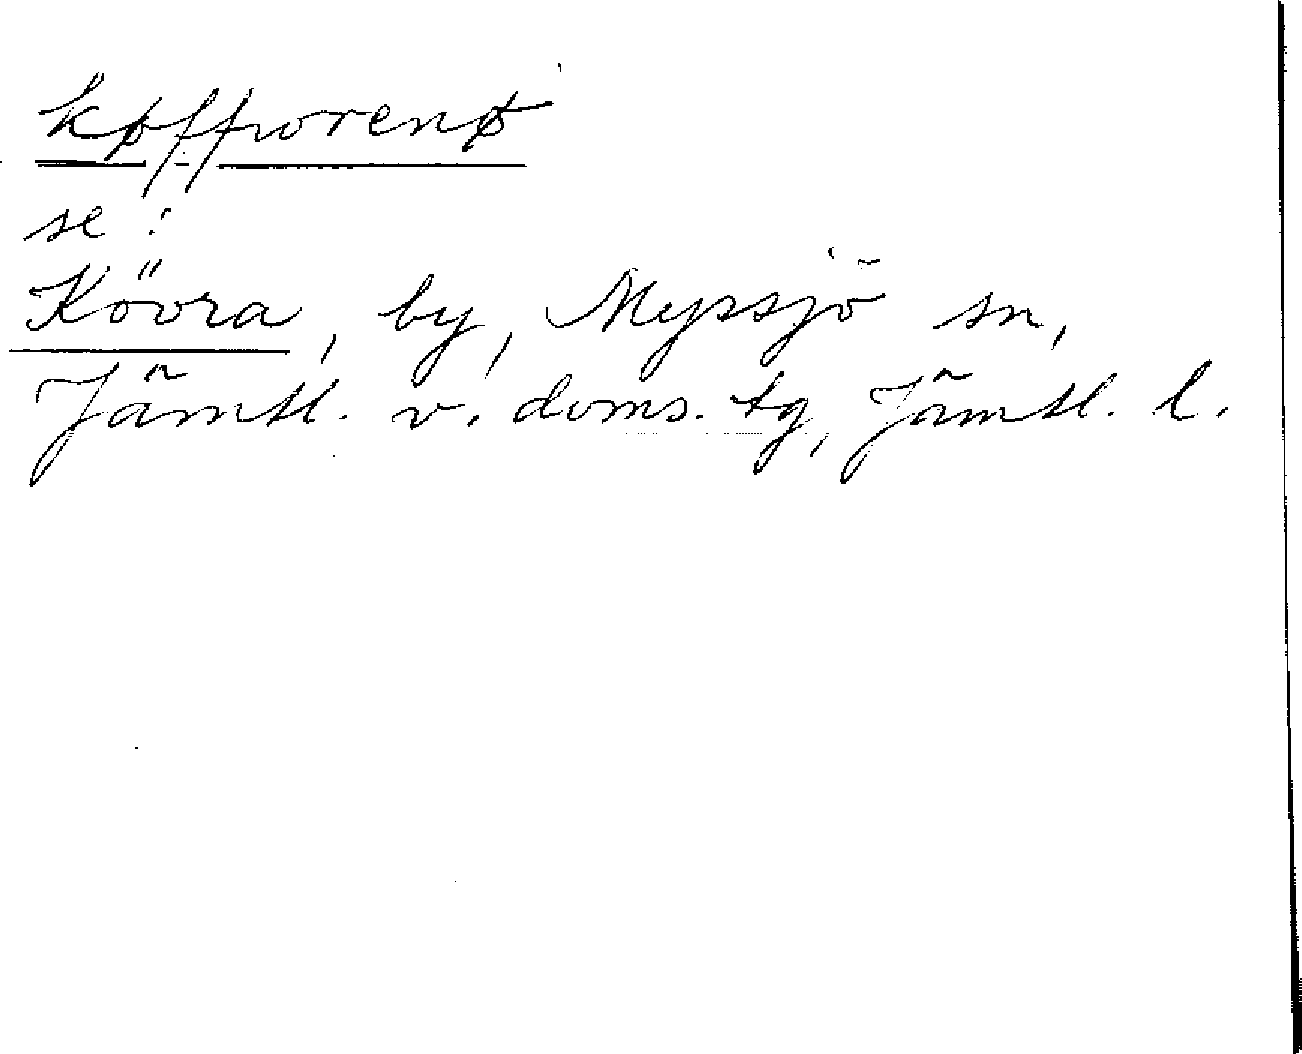 køffworenø
se:
Kövra, by, Myssjö sn,
Jämtl. v. doms. tg, Jämtl. l.